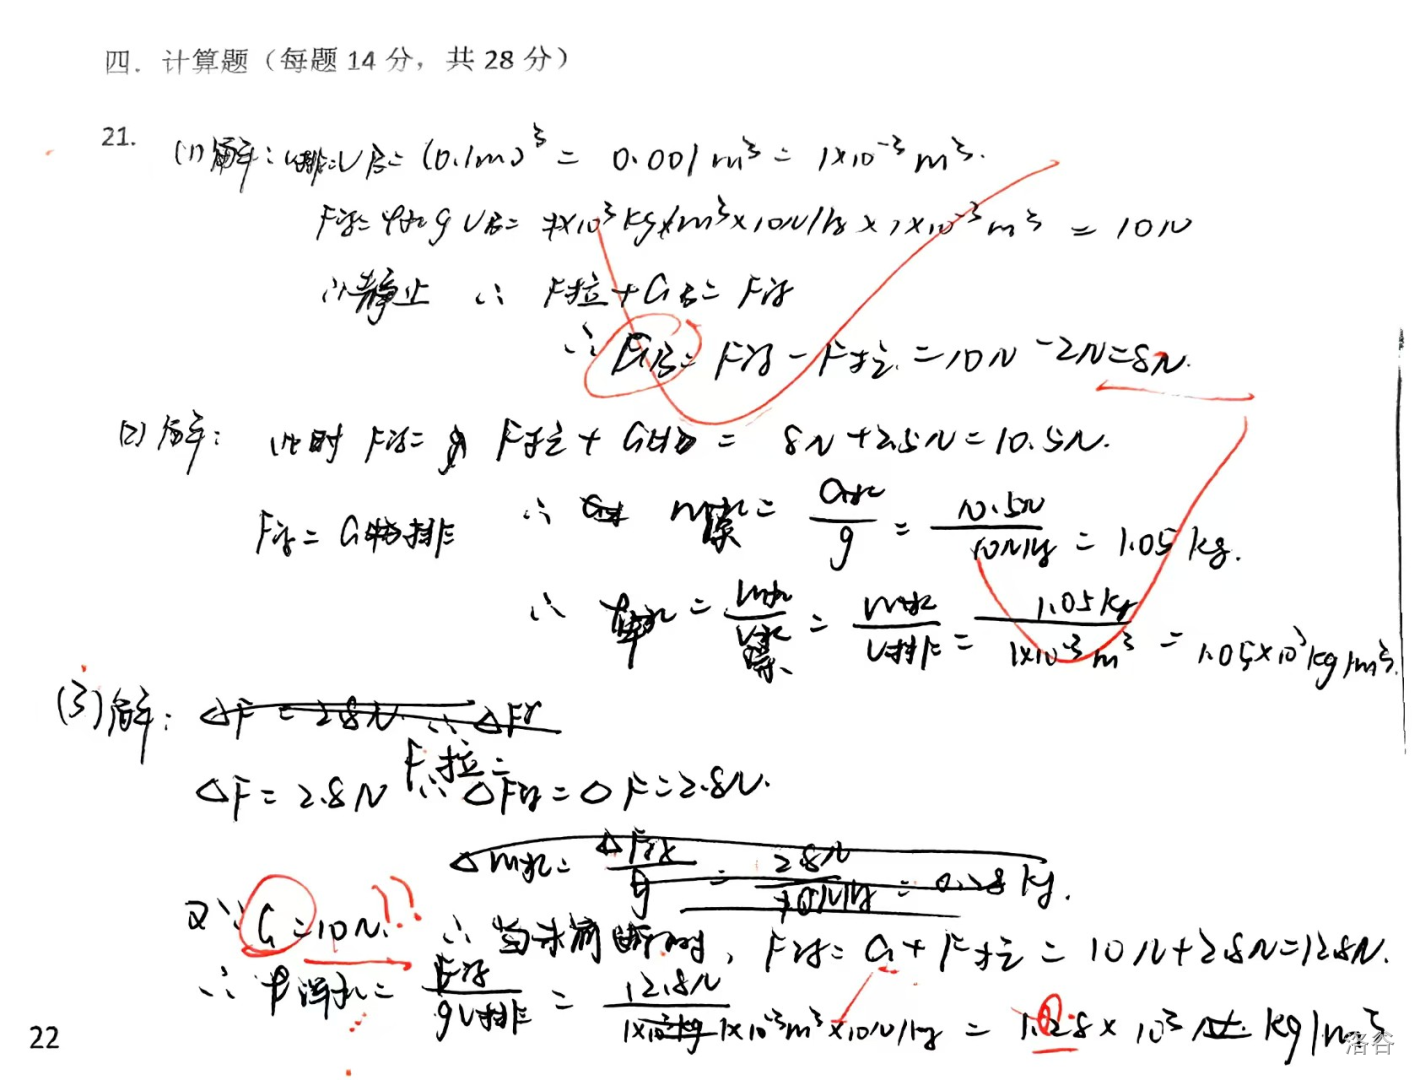 四．计算题（每题 14 分，共 28 分）
21.
(1)解：V排=VB=(0.1m)³= 0.001m³=1×10⁻³m³.
F浮=ρ水gVB=1×10³kg/m³×10N/kg×1×10⁻³m³=10N
∵静止 ∴ F拉+GB=F浮
∴ GB=F浮-F拉=10N-2N=8N.
(2)解： 此时 F浮= F拉+G = 8N+2.5N=10.5N.
F浮=G排 ∴ m = G/g = 10.5N/10N/kg = 1.05kg.
∴ ρ = m/V = m/V排 = 1.05kg/1×10⁻³m³ = 1.05×10³kg/m³.
(3)解： △F=2.8N ∴△F浮
F拉=
△F=2.8N ∴△F浮=△F=2.8N.
△m水=△F浮/g=2.8N/10N/kg=0.28kg.
又∵G=10N. ?? ∴当 断时，F浮=G+F拉=10N+2.8N=12.8N.
∴ρ =F浮/gV排=12.8N/1×10³kg 1×10⁻³m³×10N/kg=1.28×10³ kg/m³
22
洛谷